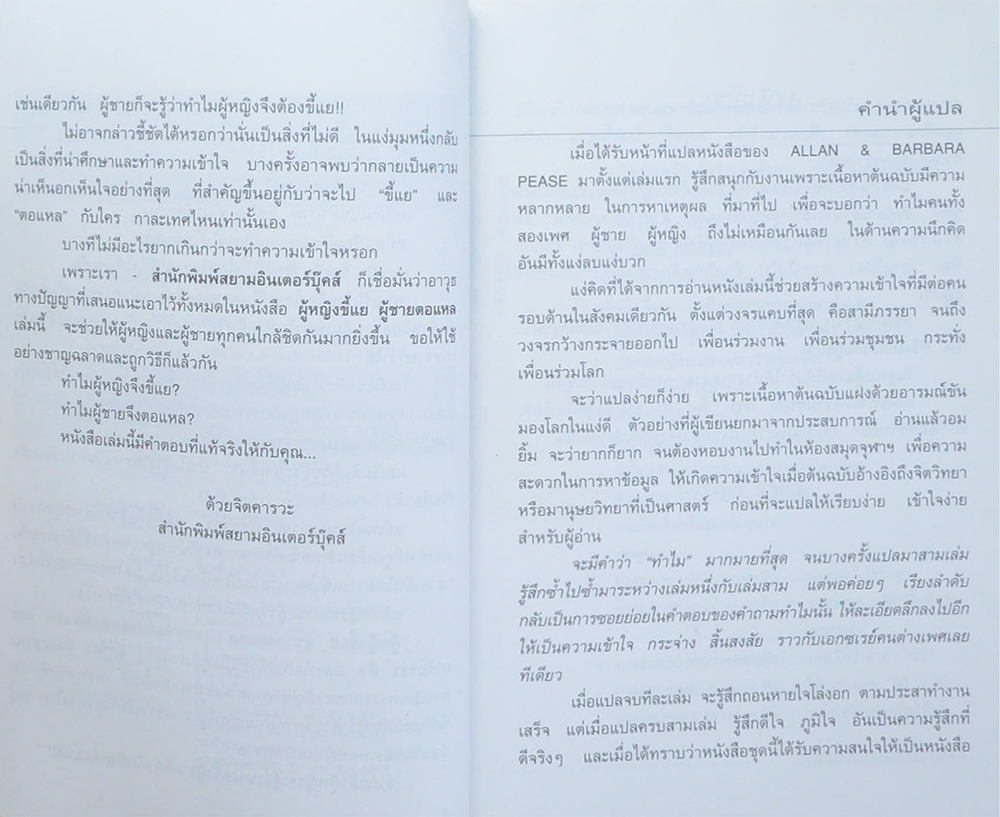 เช่นเดียวกัน ผู้ชายก็จะรู้ว่าทำไมผู้หญิงจึงต้องขี้แย!!
ไม่อาจกล่าวชี้ชัดได้หรอกว่านั่นเป็นสิ่งที่ไม่ดี ในแง่มุมหนึ่งกลับ
เป็นสิ่งที่น่าศึกษาและทำความเข้าใจ บางครั้งอาจพบว่ากลายเป็นความ
น่าเห็นอกเห็นใจอย่างที่สุด ที่สำคัญขึ้นอยู่กับว่าจะไป “ขี้แย” และ
“ตอแหล” กับใคร กาละเทศไหนเท่านั้นเอง
บางทีไม่มีอะไรยากเกินกว่าจะทำความเข้าใจหรอก
เพราะเรา - สำนักพิมพ์สยามอินเตอร์บุ๊คส์ ก็เชื่อมั่นว่าอาวุธ
ทางปัญญาที่เสนอแนะเอาไว้ทั้งหมดในหนังสือ ผู้หญิงขี้แย ผู้ชายตอแหล
เล่มนี้ จะช่วยให้ผู้หญิงและผู้ชายทุกคนใกล้ชิดกันมากยิ่งขึ้น ขอให้ใช้
อย่างชาญฉลาดและถูกวิธีก็แล้วกัน
ทำไมผู้หญิงจึงขี้แย?
ทำไมผู้ชายจึงตอแหล?
หนังสือเล่มนี้มีคำตอบที่แท้จริงให้กับคุณ...
ด้วยจิตคารวะ
สำนักพิมพ์สยามอินเตอร์บุ๊คส์
คำนำผู้แปล
เมื่อได้รับหน้าที่แปลหนังสือของ ALLAN & BARBARA
PEASE มาตั้งแต่เล่มแรก รู้สึกสนุกกับงานเพราะเนื้อหาต้นฉบับมีความ
หลากหลาย ในการหาเหตุผล ที่มาที่ไป เพื่อจะบอกว่า ทำไมคนทั้ง
สองเพศ ผู้ชาย ผู้หญิง ถึงไม่เหมือนกันเลย ในด้านความนึกคิด
อันมีทั้งแง่ลบแง่บวก
แง่คิดที่ได้จากการอ่านหนังสือเล่มนี้ช่วยสร้างความเข้าใจที่มีต่อคน
รอบด้านในสังคมเดียวกัน ตั้งแต่วงจรแคบที่สุด คือสามีภรรยา จนถึง
วงจรกว้างกระจายออกไป เพื่อนร่วมงาน เพื่อนร่วมชุมชน กระทั่ง
เพื่อนร่วมโลก
จะว่าแปลง่ายก็ง่าย เพราะเนื้อหาต้นฉบับแฝงด้วยอารมณ์ขัน
มองโลกในแง่ดี ตัวอย่างที่ผู้เขียนยกมาจากประสบการณ์ อ่านแล้วอม
ยิ้ม จะว่ายากก็ยาก จนต้องหอบงานไปทำในห้องสมุดจุฬาฯ เพื่อความ
สะดวกในการหาข้อมูล ให้เกิดความเข้าใจเมื่อต้นฉบับอ้างอิงถึงจิตวิทยา
หรือมานุษยวิทยาที่เป็นศาสตร์ ก่อนที่จะแปลให้เรียบง่าย เข้าใจง่าย
สำหรับผู้อ่าน
จะมีคำว่า “ทำไม” มากมายที่สุด จนบางครั้งแปลมาสามเล่ม
รู้สึกซ้ำไปซ้ำมาระหว่างเล่มหนึ่งกับเล่มสาม แต่พอค่อยๆ เรียงลำดับ
กลับเป็นการซอยย่อยในคำตอบของคำถามทำไมนั้น ให้ละเอียดลึกลงไปอีก
ให้เป็นความเข้าใจ กระจ่าง สิ้นสงสัย ราวกับเอกซเรย์คนต่างเพศเลย
ทีเดียว
เมื่อแปลจบทีละเล่ม จะรู้สึกถอนหายใจโล่งอก ตามประสาทำงาน
เสร็จ แต่เมื่อแปลครบสามเล่ม รู้สึกดีใจ ภูมิใจ อันเป็นความรู้สึกที่
ดีจริงๆ และเมื่อได้ทราบว่าหนังสือชุดนี้ได้รับความสนใจให้เป็นหนังสือ